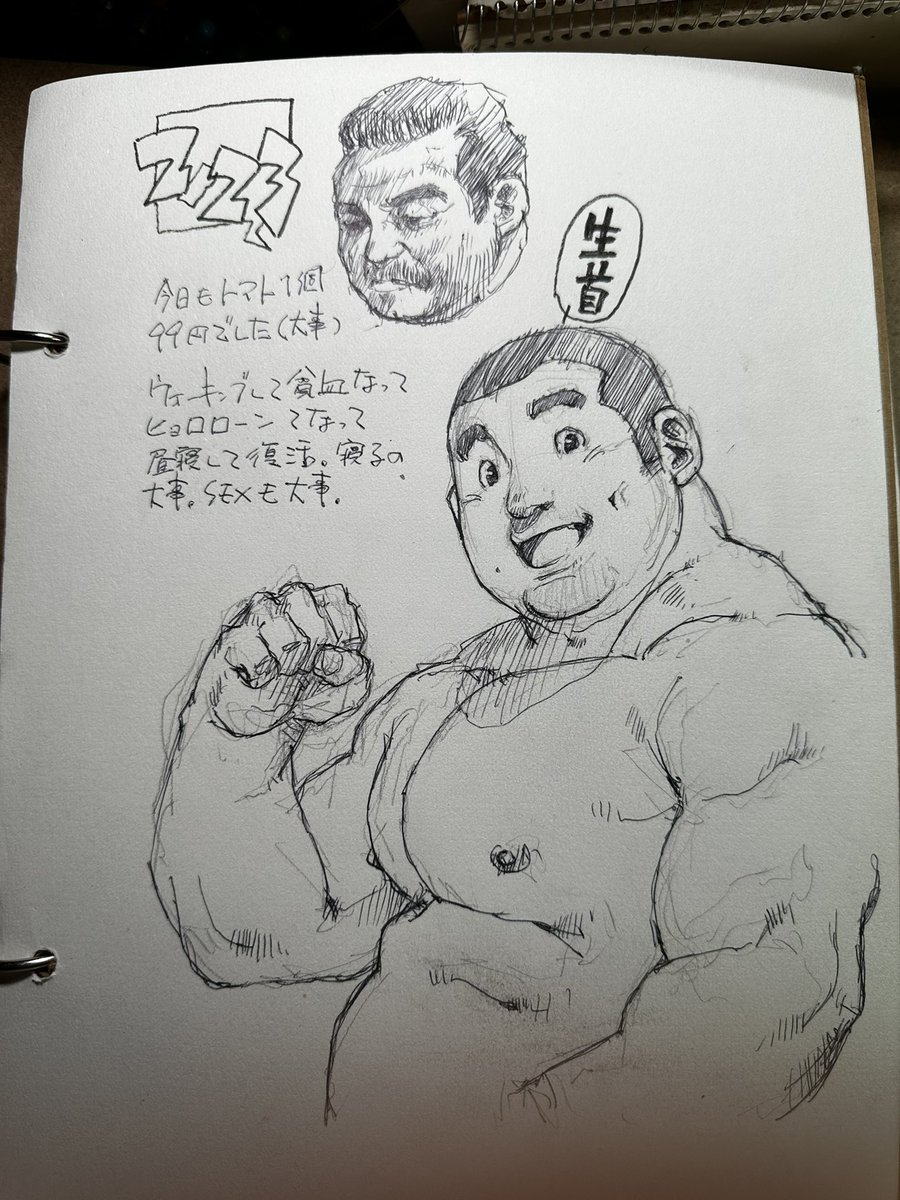 生首
今日もトマト1個
99円でした(大事)
ウォーキングして貧血なって
ヒョロローンてなって
昼寝して復活。寝るの
大事。SEXも大事。